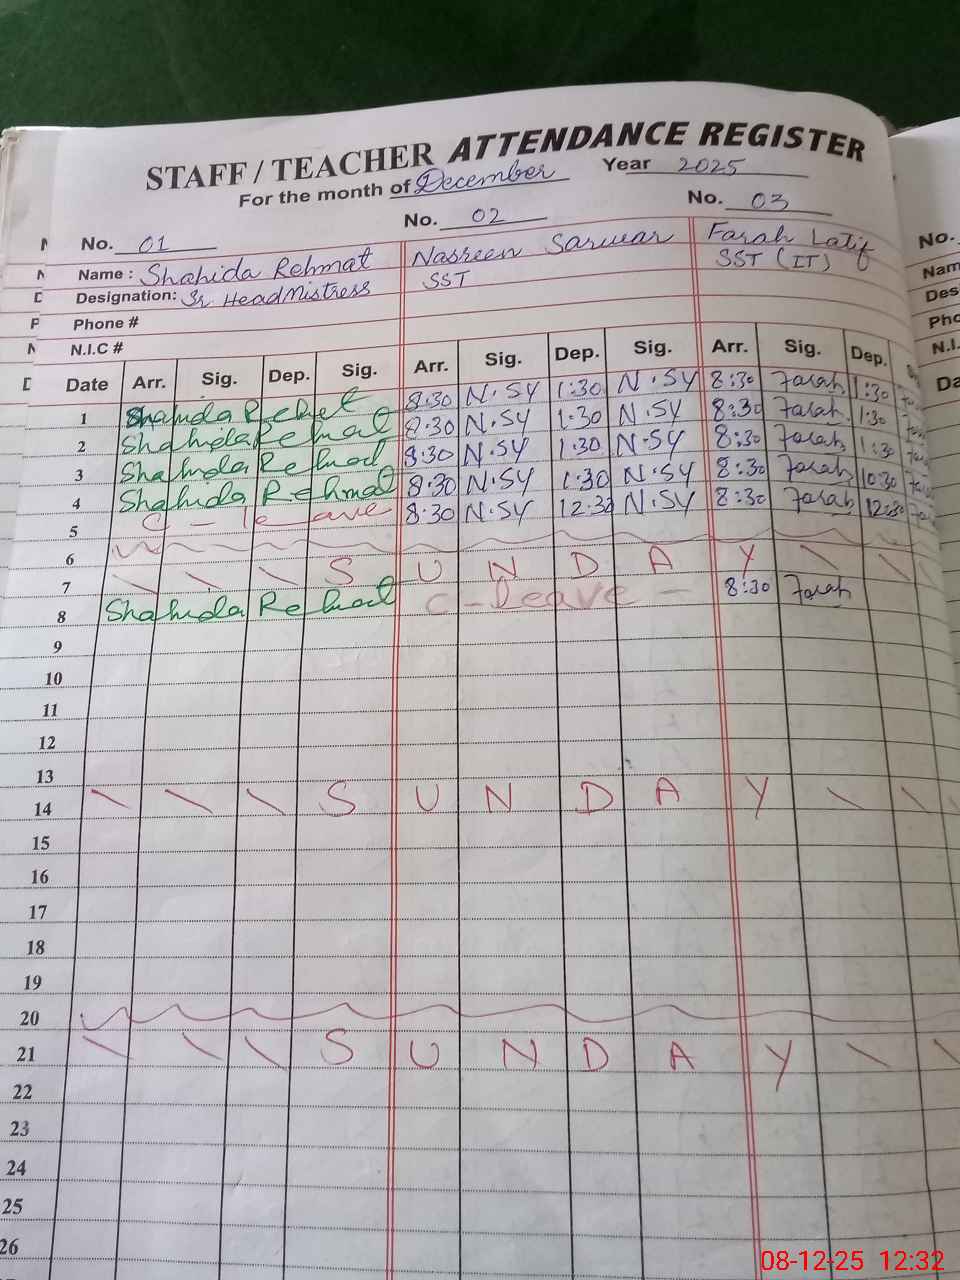 STAFF / TEACHER ATTENDANCE REGISTER
For the month of December Year 2025
No. 01 No. 02 No. 03
Name : Shahida Rehmat Nasreen Sarwar Farah Latif
Designation: Sr HeadMistress SST SST (IT)
Phone #
N.I.C #
Date Arr. Sig. Dep. Sig. Arr. Sig. Dep. Sig. Arr. Sig. Dep.
1 Shahida Rehmat 8:30 N.SY 1:30 N.SY 8:30 Farah 1:30
2 Shahida Rehmat 8:30 N.SY 1:30 N.SY 8:30 Farah 1:30
3 Shahida Rehmat 8:30 N.SY 1:30 N.SY 8:30 Farah 1:30
4 Shahida Rehmat 8:30 N.SY 1:30 N.SY 8:30 Farah 10:30
5 C - leave 8:30 N.SY 12:30 N.SY 8:30 Farah 12:30
6
7 S U N D A Y
8 Shahida Rehmat C - leave - 8:30 Farah
9
10
11
12
13
14 S U N D A Y
15
16
17
18
19
20
21 S U N D A Y
22
23
24
25
26
No.
Nam
Des
Pho
N.I.
Da
08-12-25 12:32